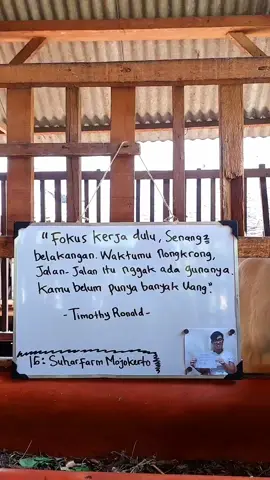 "Fokus kerja dulu, Senang2
belakangan. Waktumu nongkrong,
Jalan-Jalan itu nggak ada gunanya.
Kamu belum punya banyak Uang".
- Timothy Ronald -
IG: Suhar.farm Mojokerto